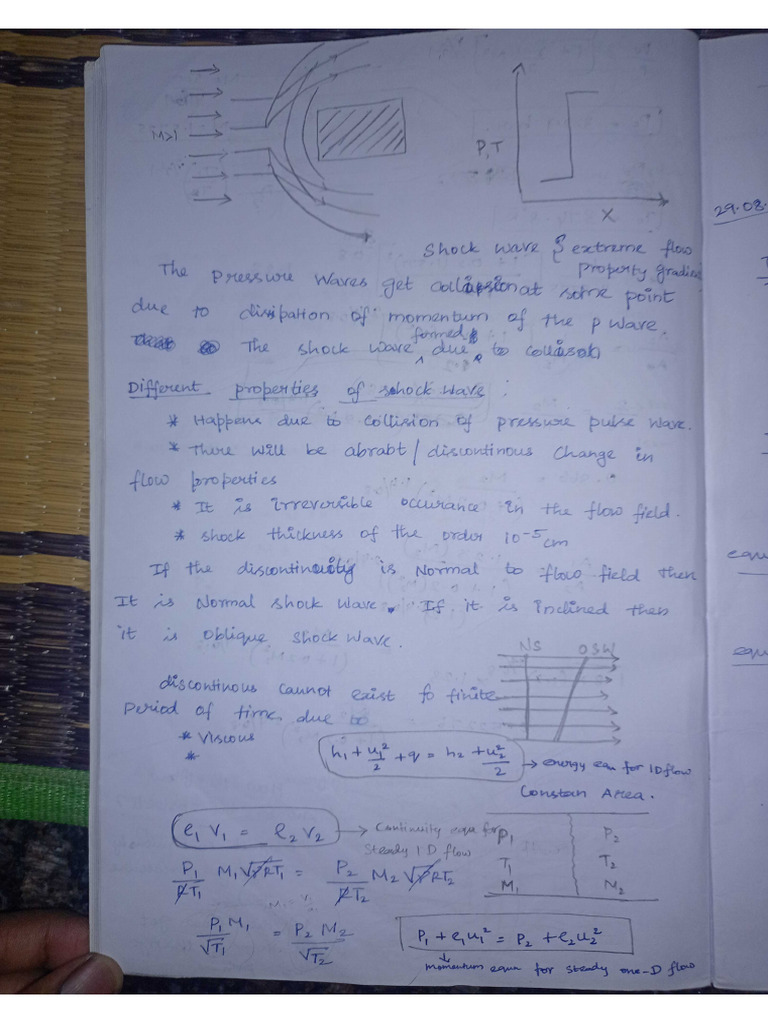 M>1
P,T
X
29.08.
Shock wave { extreme flow
property gradie
The Pressure waves get collission at some point
due to dissipation of momentum of the P wave.
The shock wave formed due to collission
Different properties of shock wave :
* Happens due to collision of pressure pulse wave.
* There will be abrabt / discontinous change in
flow properties
* It is irreversible occurance in the flow field.
* shock thickness of the order 10⁻⁵cm
If the discontinuity is Normal to flow field then
It is Normal shock wave. If it is inclined then
it is oblique shock wave.
NS OSW
discontinous cannot exist fo finite
Period of time due to
* Viscous
*
h₁ + u₁²/2 + q = h₂ + u₂²/2 → energy equ for 1D flow
Constan Area.
ρ₁ V₁ = ρ₂ V₂ → Continuity equ for
Steady 1D flow
P₁ P₂
T₁ T₂
M₁ M₂
P₁/RT₁ M₁√γRT₁ = P₂/RT₂ M₂√γRT₂
P₁M₁/√T₁ = P₂M₂/√T₂
P₁ + ρ₁u₁² = P₂ + ρ₂u₂²
momentum equa for steady one-D flow
equ
equ